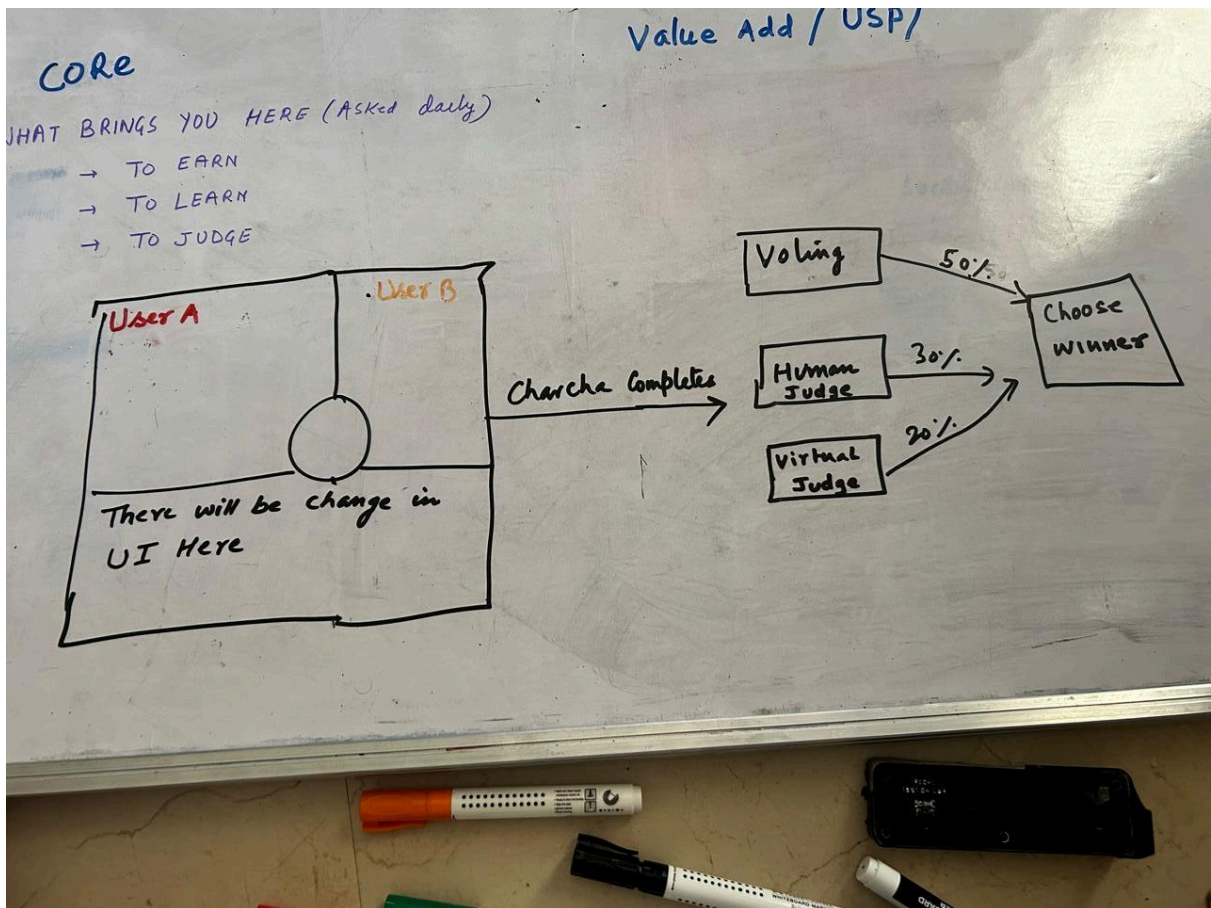 CORe
WHAT BRINGS YOU HERE (Asked daily)
→ TO EARN
→ TO LEARN
→ TO JUDGE
Value Add / USP/
User A
User B
There will be change in
UI Here
Charcha Completes
Voting
50%
Human
Judge
30%
Virtual
Judge
20%
Choose
winner